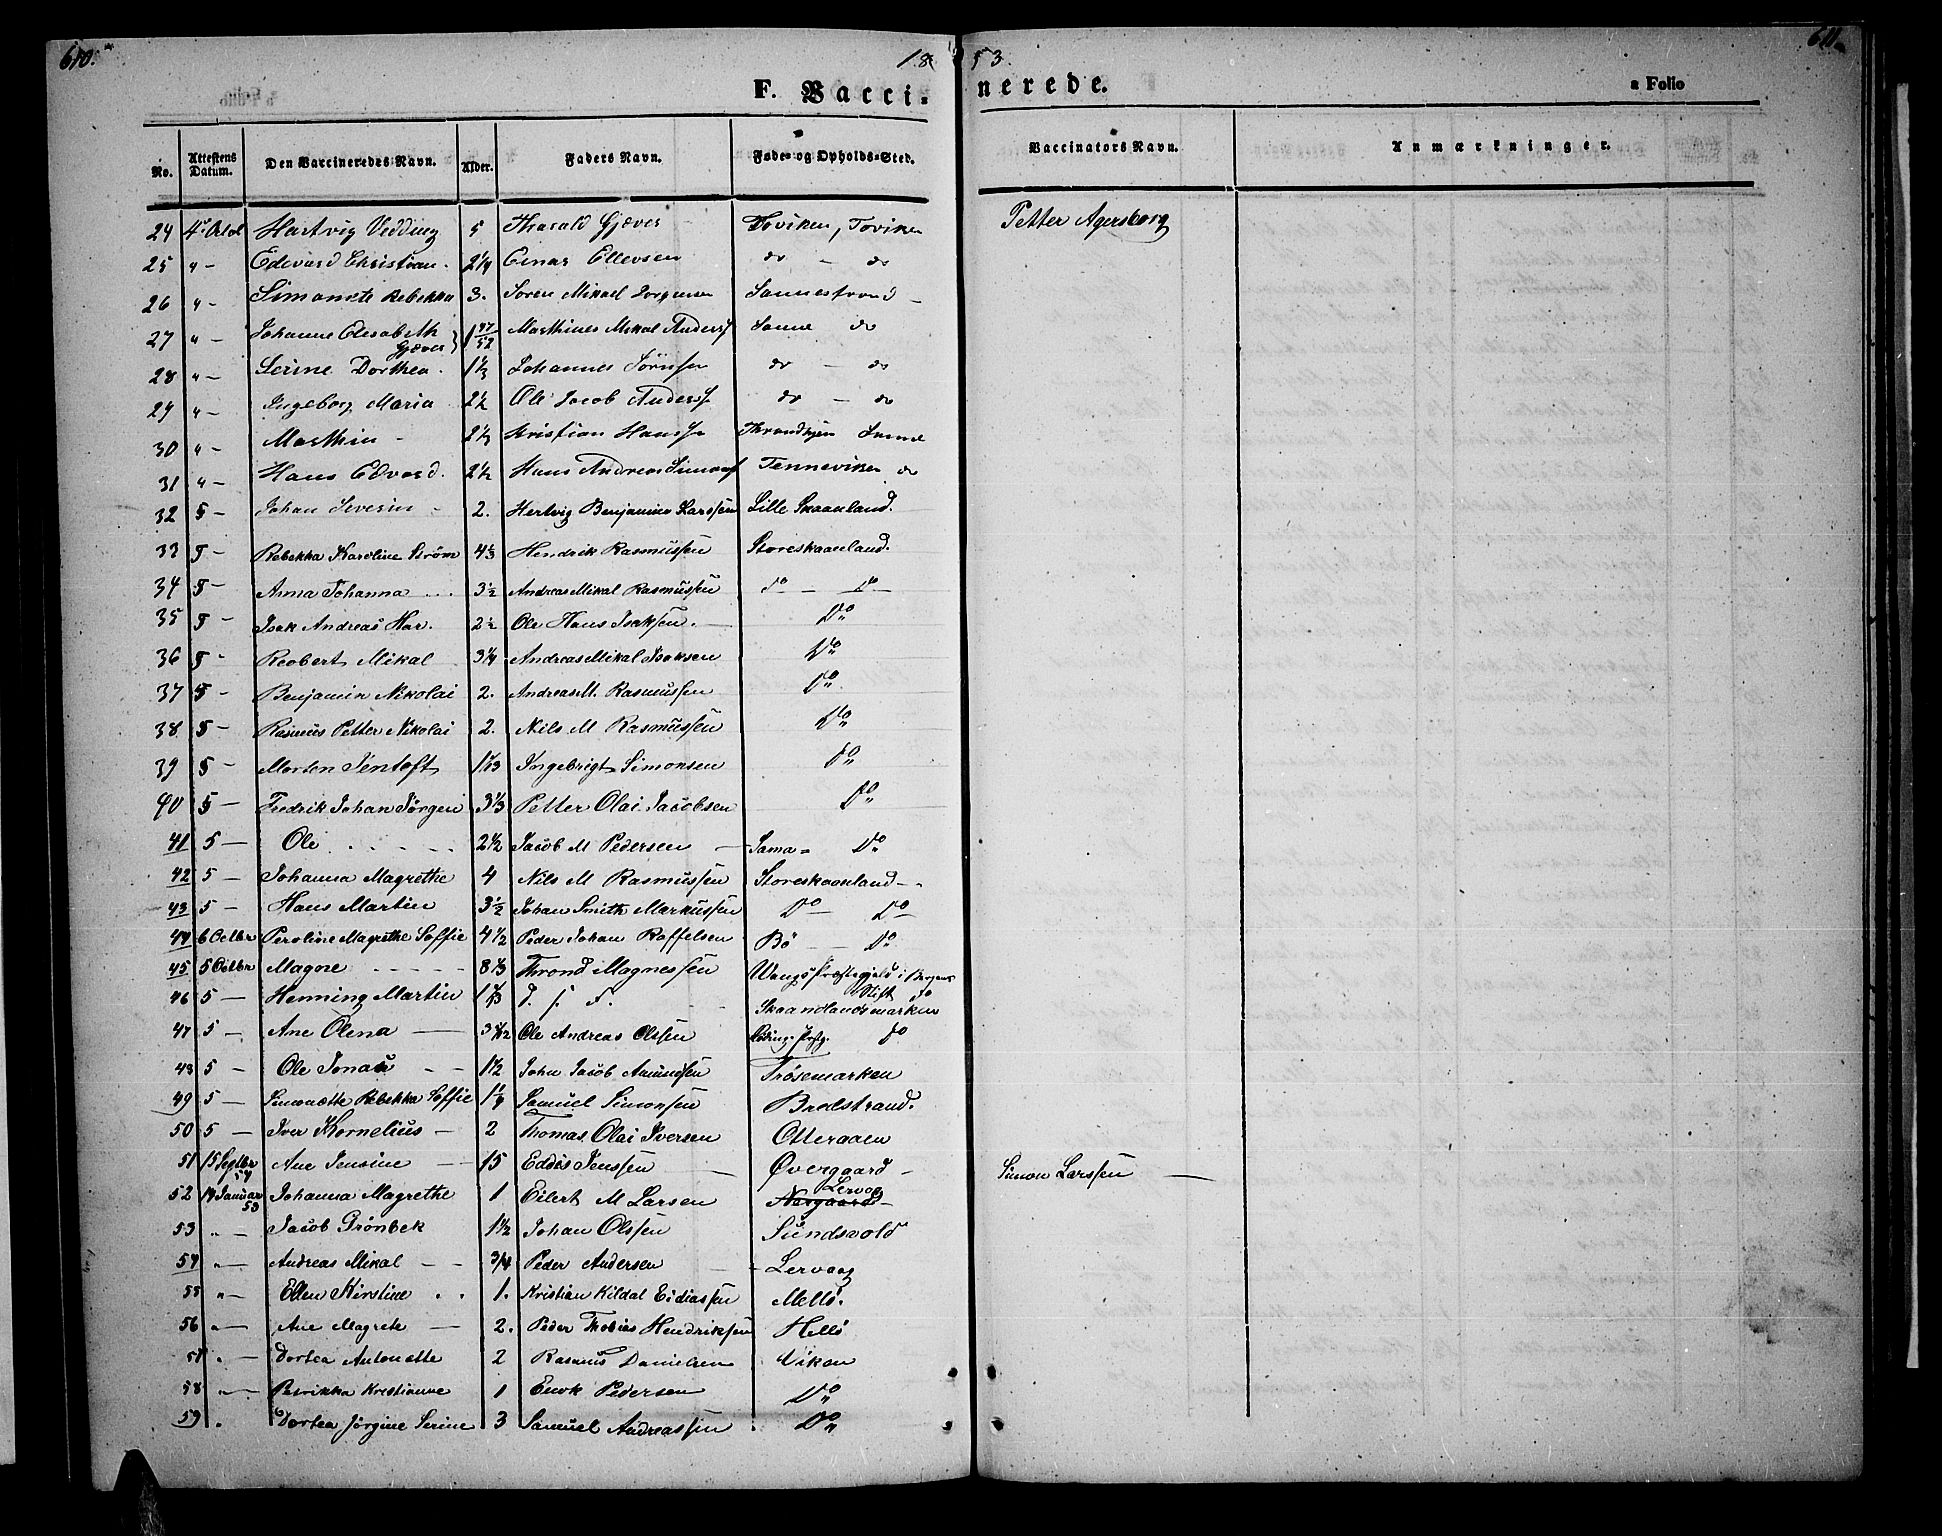 610.
1853.
611.
F. Vaccinerede.
a Folio
No.
Attestens Datum.
Den Vaccineredes Navn.
Alder.
Faders Navn.
Føde- og Opholds-Sted.
Vaccinators Navn.
Anmærkninger.
24 4de Octob Hartvig Vedding 5 Tharald Gjæver Toviken, Toviken Petter Agersborg
25 " - Edevard Christian. 2 1/4 Einar Ellevsen do - do
26 " - Simonete Rebekka 3. Søren Mikael Jørgensen Sannestrand -
27 " - Johanne Elesabeth Gjæver 1 47/52 Marthines Mikal Anders Sanne do
28 " - Serine Dorthea. 1 1/3 Johannes Sørns do - do
29 " - Ingeborg Maria 2 1/2 Ole Jacob Anders do - do
30 " - Marthin - 2 1/3 Kristian Hans Throndhjem Sanne
31 " - Hans Edvard. 2 1/2 Hans Andreas Simons Tenneviken do
32 5 - Johan Severin - 2. Hertvig Benjamin Larssen Lille Skaanland.
33 5 - Rebekka Karoline Strøm 4 1/3 Hendrik Rasmussen Storeskaanland.
34 5 - Anna Johanna ... 3 1/2 Andreas Mikal Rasmussen do - do -
35 5 - Isak Andreas Har. 2 1/2 Ole Hans Isaksen. - Do
36 5 - Reobert Mikal 3 1/4 Andreas Mikal Isaksen Do
37 5 - Benjamin Nikolai 2. Andreas M. Rasmussen Do
38 5 - Rasmus Petter Nikolai 2. Nils M Rasmussen Do
39 5 - Morten Jentoft Ingebrigt Simonsen Do
40 5 - Fredrik Johan Jørgen 3 1/3 Petter Olai Jacobsen Do
41 5 - Ole ..... 2 1/2 Jacob M Pedersen - Sama = Do
42 5 - Johanna Magrethe 4 Nils M Rasmussen Storeskaanland -
43 5 - Hans Martin 3 1/2 Johan Smith Markussen Do - Do -
44 6 Octbr Peroline Magrethe Soffie 4 1/2 Peder Johan Roffelsen Bö - Do
45 5 Octbr Magne - - - - - 8 1/3 Thrond Magnessen Wangs Præstegjæld i Bergens Stift
46 5 - Henning Martin d. s. s. Skaanlandsmarken
47 5 - Ane Olena - Ole Andreas Olssen Do
48 5 - Ole Jonas - - 1 1/2 John Jacob Amundsen Trøsemarken
49 5 - Simonette Rebekka Soffie 1 1/4 Samuel Simonsen Bredstrand.
50 5 - Iver Kornelius - 2 Thomas Olai Iversen Otteraaen
51 15 Septbr 54 Ane Jensine - 15 Eddis Jenssen - Øvergaard - Simon Larssen -
52 14 Januar 53 Johanna Magrethe 1 Eilert M Larsen Lervaag
53 " - Jacob Grönbek 1 1/2 Johan Olssen Sundsvold
54 " - Andreas Mikal - - 3/4 Peder Andersen - Lervaag
55 " - Ellen Kirstine . . 1. Kristian Kildal Eidiassen Mellö.
56 " - Ane Magrete - 2. Peder Thobias Hendriksen Hellö
57 " - Dortea Antonette 2 Rasmus Danielsen Viken
58 " - Petrikka Kristianne 1 Enok Pedersen Do
59 " Dortea Jørgine Serine 3 Samuel Andreassen Do